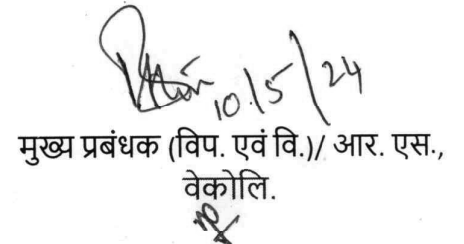 10/5/24
मुख्य प्रबंधक (विप. एवं वि.)/ आर. एस.,
वेकोलि.